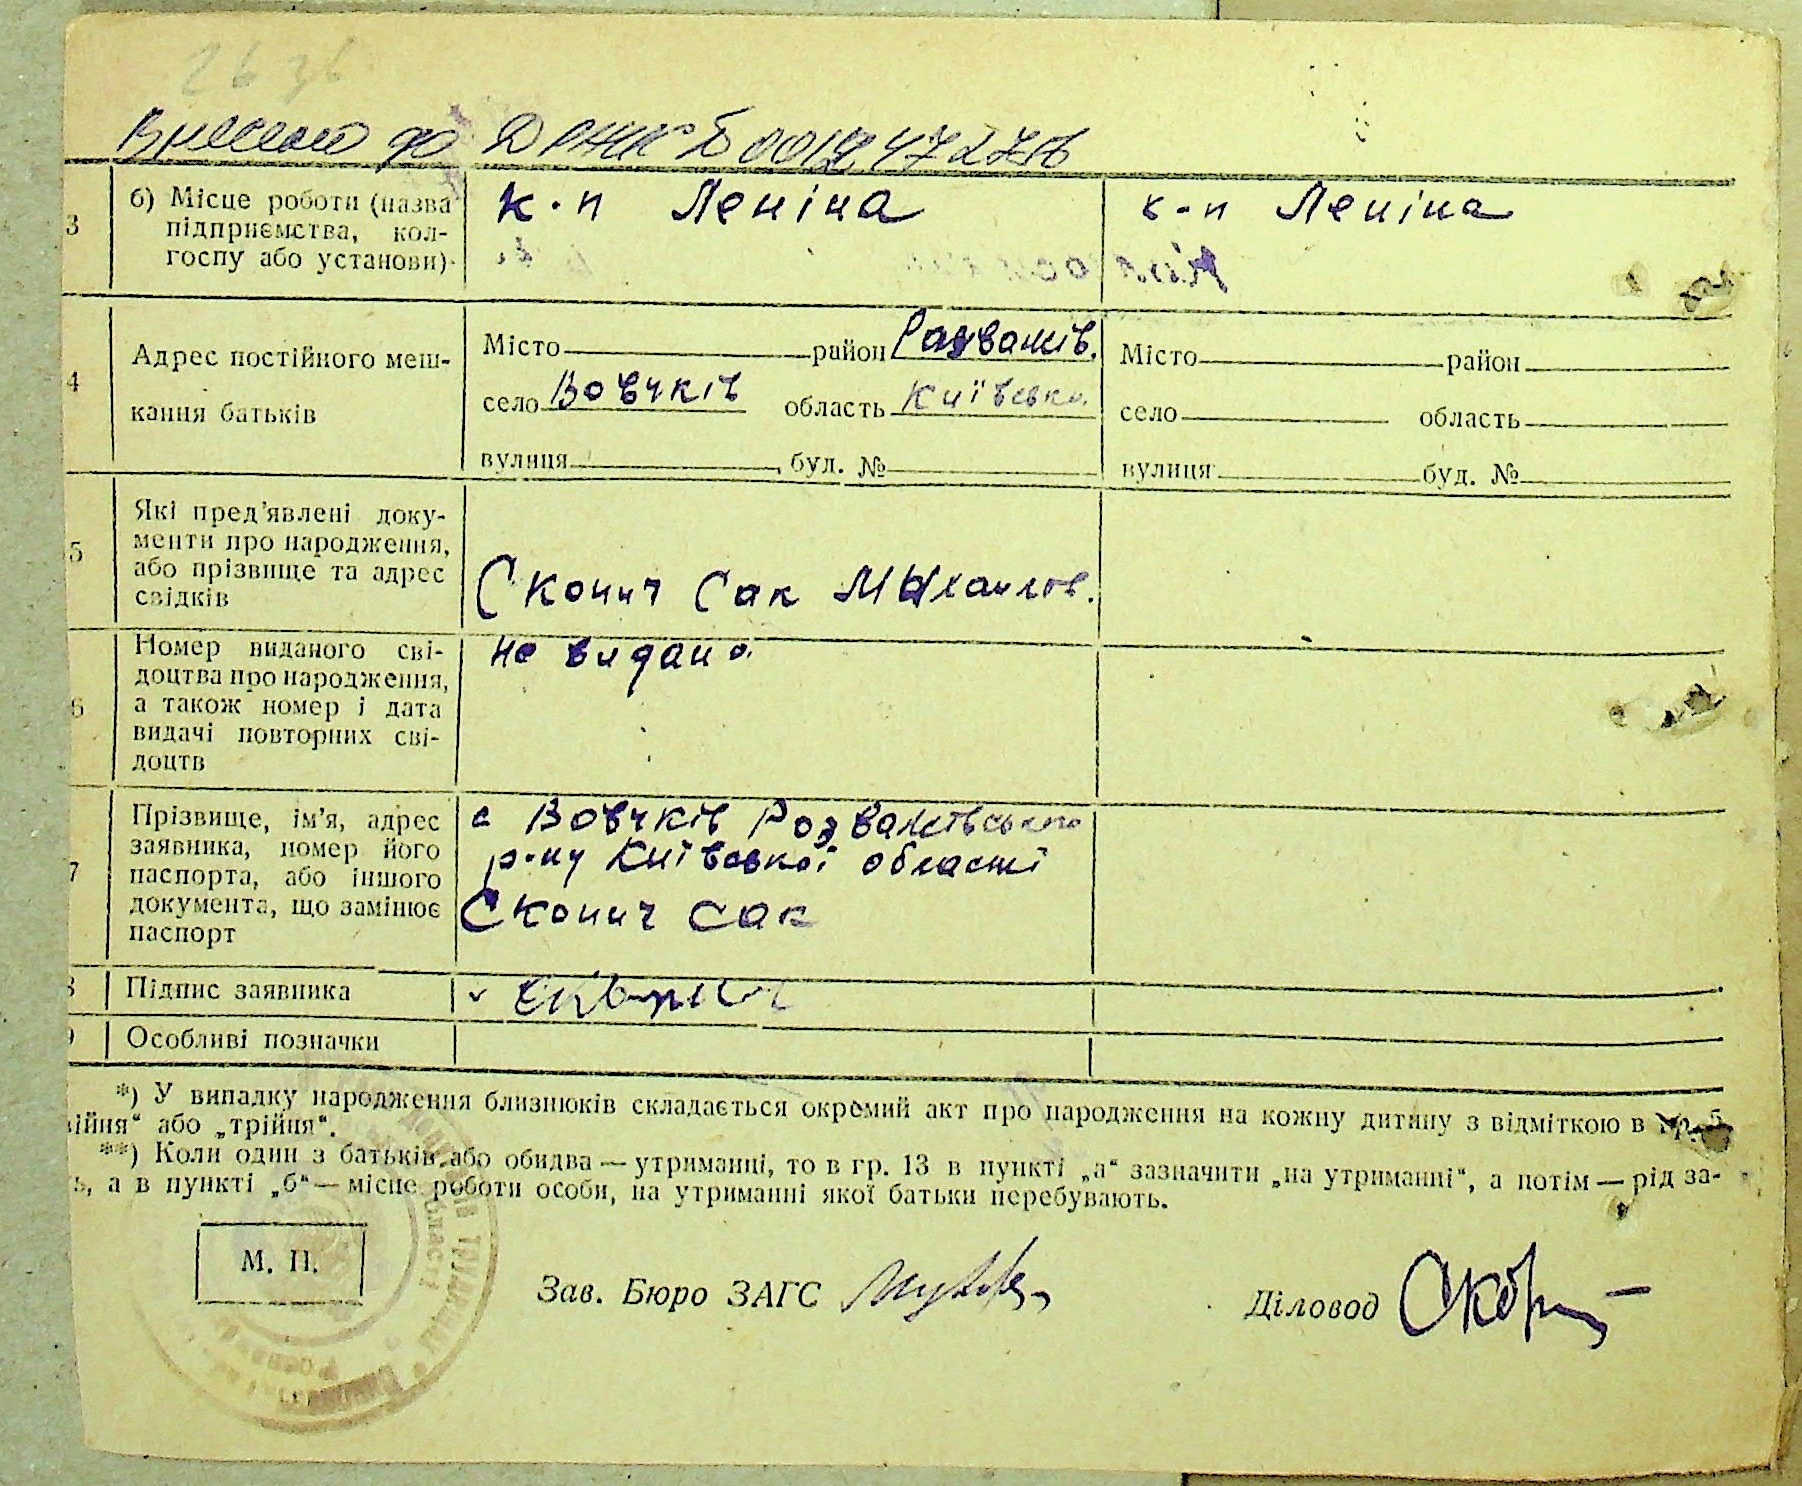 26 36
Внесено до ДРАЦСГ 00124727
3 б) Місце роботи (назва підприємства, кол-
госпу або установи)
к-п Леніна
к-п Леніна
4 Адрес постійного меш-
кання батьків
Місто район Розважів.
село Вовчків область Київська
вулиця , буд. №
Місто район
село область
вулиця буд. №
5 Які пред'явлені доку-
менти про народження,
або прізвище та адрес
свідків
Сконич Сак Михайлов.
6 Номер виданого сві-
доцтва про народження,
а також номер і дата
видачі повторних сві-
доцтв
не видано
7 Прізвище, ім'я, адрес
заявника, номер його
паспорта, або іншого
документа, що замінює
паспорт
с Вовчків Розважівського
р-ну Київської області
Сконич Сак
8 Підпис заявника
9 Особливі позначки
*) У випадку народження близнюків складається окремий акт про народження на кожну дитину з відміткою в гр. 5
ійня“ або „трійня“.
**) Коли один з батьків або обидва — утриманці, то в гр. 13 в пункті „а“ зазначити „на утриманні“, а потім — рід за-
ь, а в пункті „б“ — місце роботи особи, на утриманні якої батьки перебувають.
М. П.
Зав. Бюро ЗАГС
Діловод